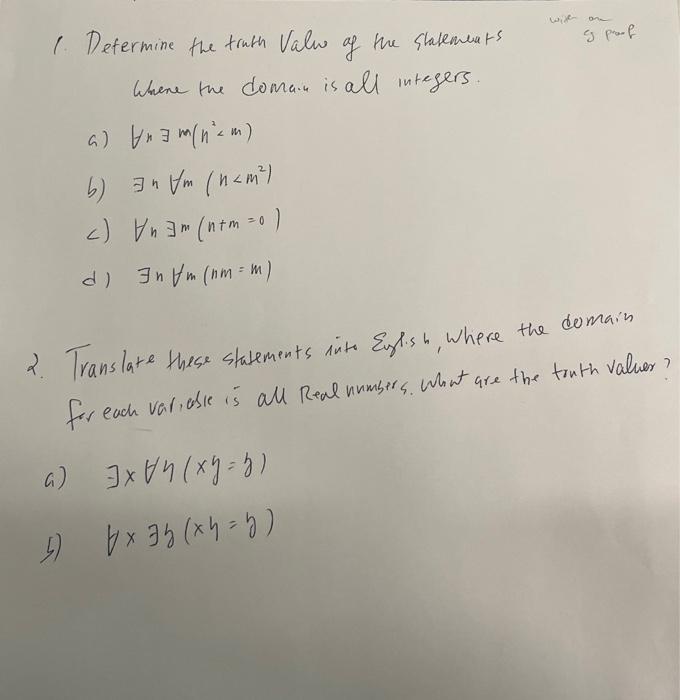 1. Determine the truth Value of the statements
Where the domain is all integers.
a) ∀n ∃ m(n² < m)
b) ∃n ∀m (n < m²)
c) ∀n ∃m (n+m = 0)
d) ∃n ∀m (nm = m)
2. Translate these statements into English, Where the domain
for each variable is all Real numbers. What are the truth values?
a) ∃x ∀y (xy = y)
b) ∀x ∃y (xy = y)